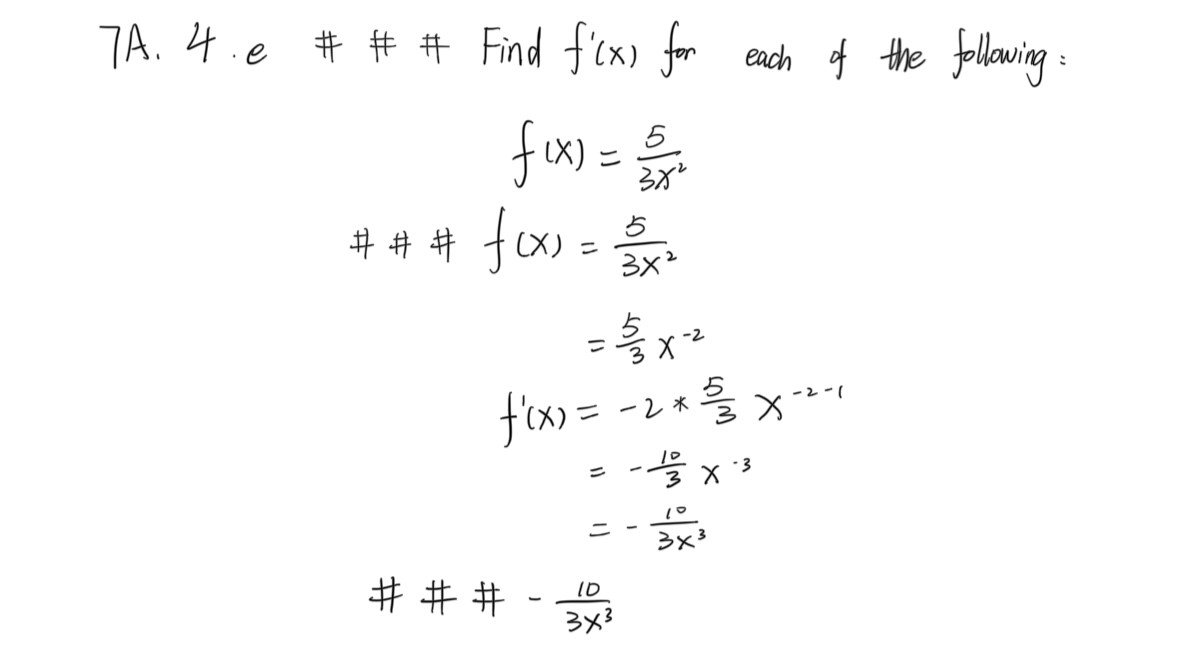 7A. 4.e # # # Find f'(x) for each of the following:
f(x) = 5/3x²
# # # f(x) = 5/3x²
= 5/3 x⁻²
f'(x) = -2 * 5/3 x⁻²⁻¹
= -10/3 x⁻³
= -10/3x³
# # # -10/3x³